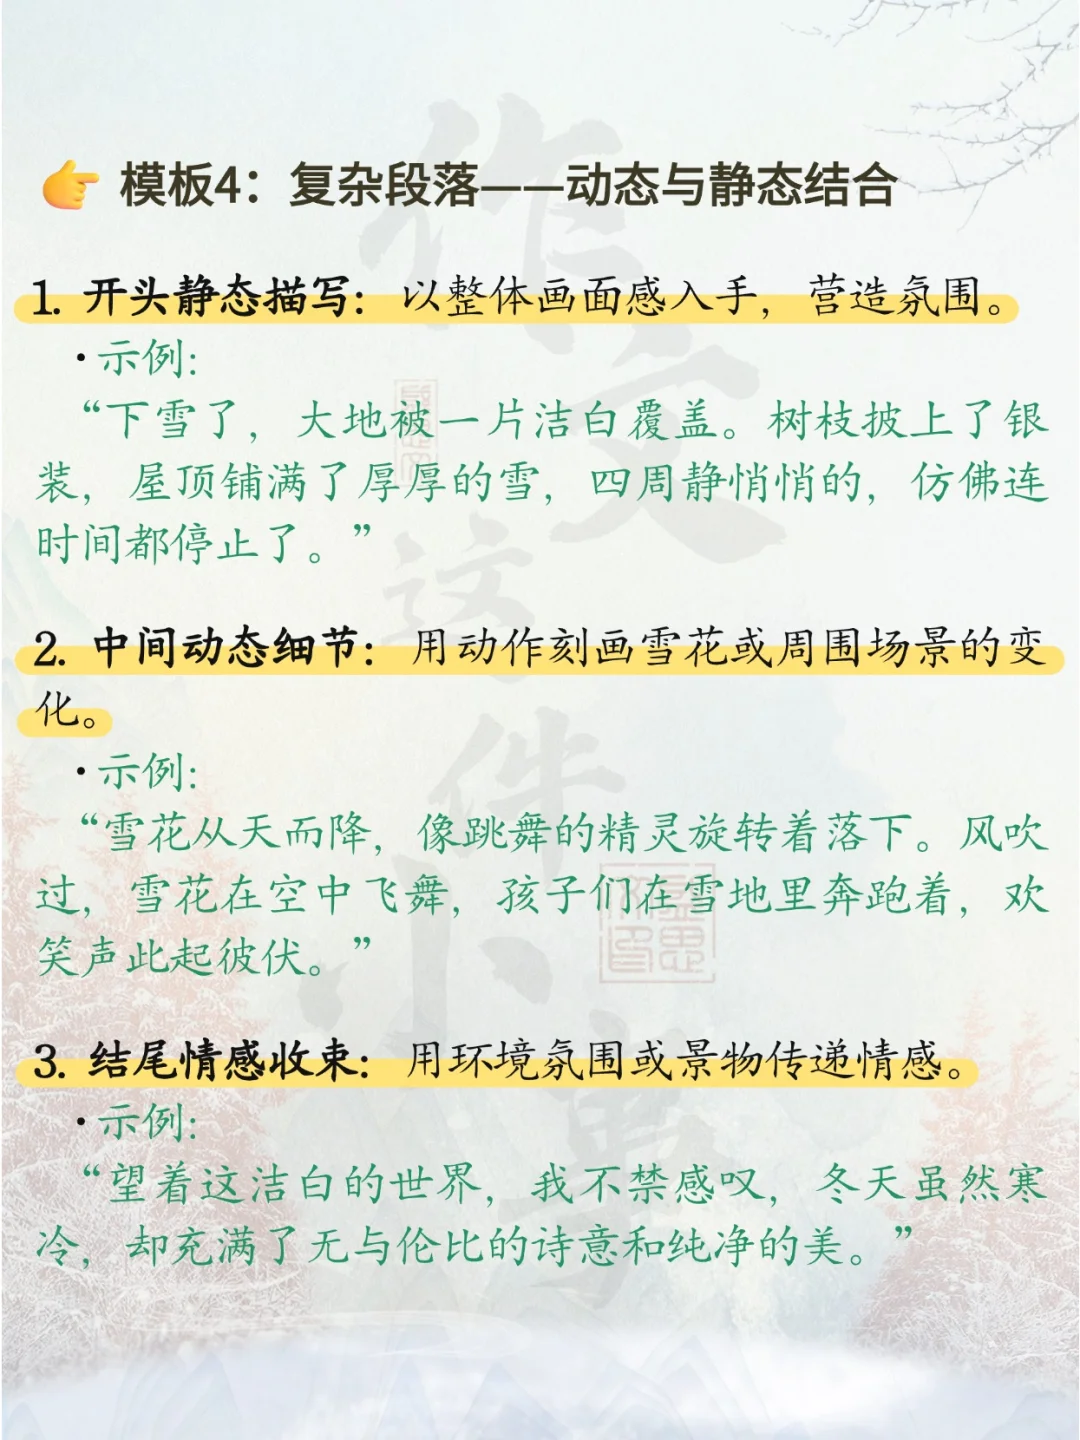 👉 模板4：复杂段落——动态与静态结合
1. 开头静态描写：以整体画面感入手，营造氛围。
·示例：
“下雪了，大地被一片洁白覆盖。树枝披上了银
装，屋顶铺满了厚厚的雪，四周静悄悄的，仿佛连
时间都停止了。”
2. 中间动态细节：用动作刻画雪花或周围场景的变
化。
·示例：
“雪花从天而降，像跳舞的精灵旋转着落下。风吹
过，雪花在空中飞舞，孩子们在雪地里奔跑着，欢
笑声此起彼伏。”
3. 结尾情感收束：用环境氛围或景物传递情感。
·示例：
“望着这洁白的世界，我不禁感叹，冬天虽然寒
冷，却充满了无与伦比的诗意和纯净的美。”
作文这件小事